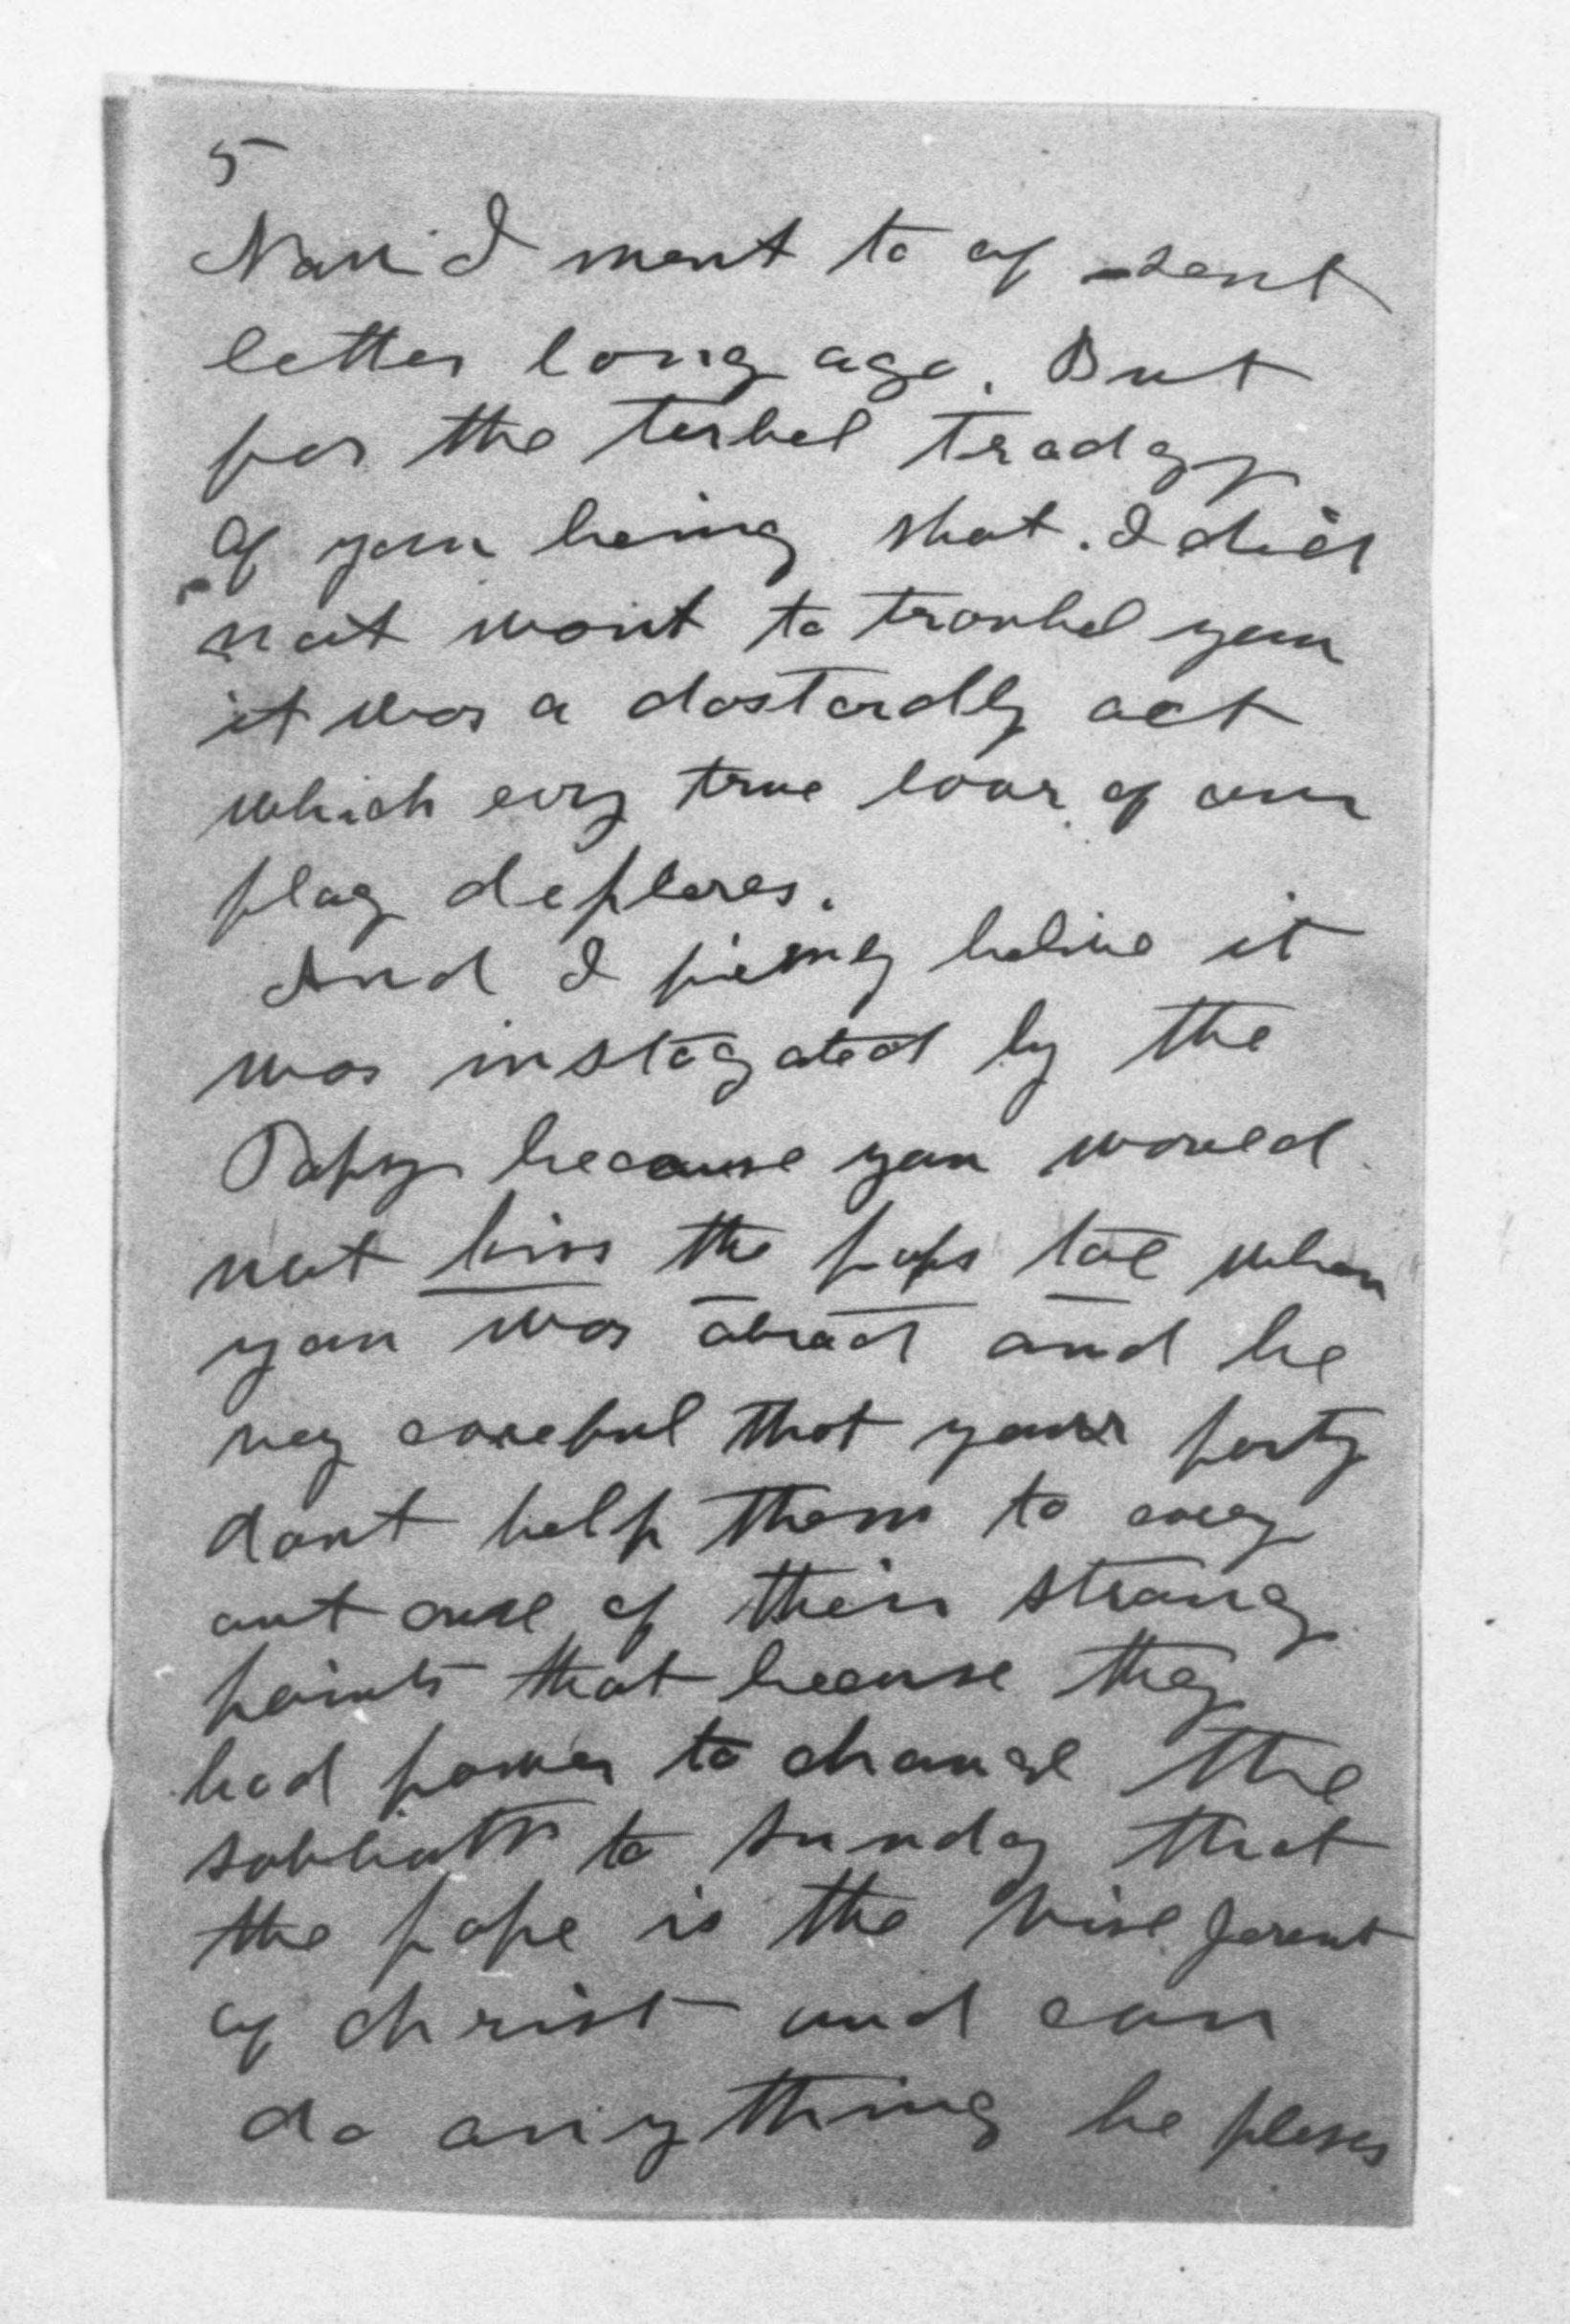 5
Now I ment to of sent
letter long ago. But
for the terbel tradgy
of you being shot. I did
not wont to troubel you
it was a dastardly act
which evry true lover of our
flag deplores.
And I firmly belive it
was instagated by the
Papsy because you would
not kiss the pops toe when
you was abrad and be
very careful that your party
dont help them to cary
out one of their strong
points that because they
had power to change the
sabbath to Sunday that
the pope is the vise gerent
of christ and can
do anything he pleses